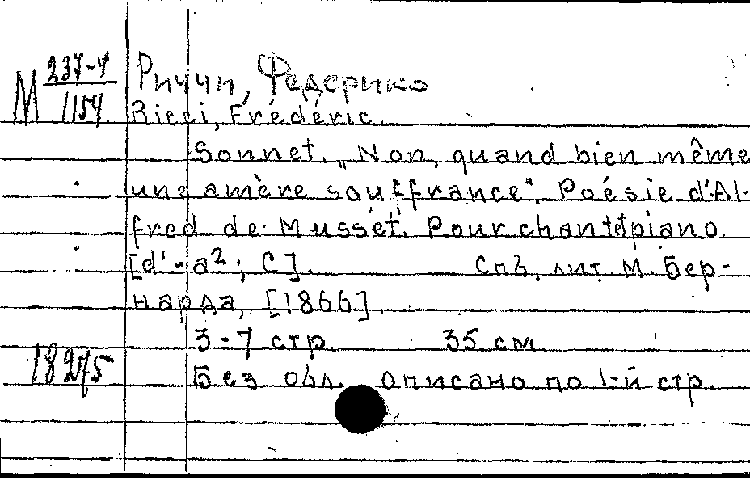 М 237-4/1154
Риччи, Федерико
Ricci, Frédéric.
Sonnet. „Non, quand bien même
une amère souffrance". Poésie d'Al-
fred de Musset. Pour chant et piano
[d'-a²; C]. Спб, лит. М. Бер-
нарда, [1866].
3-7 стр. 35 см
Без обл. Описано по 1-й стр.